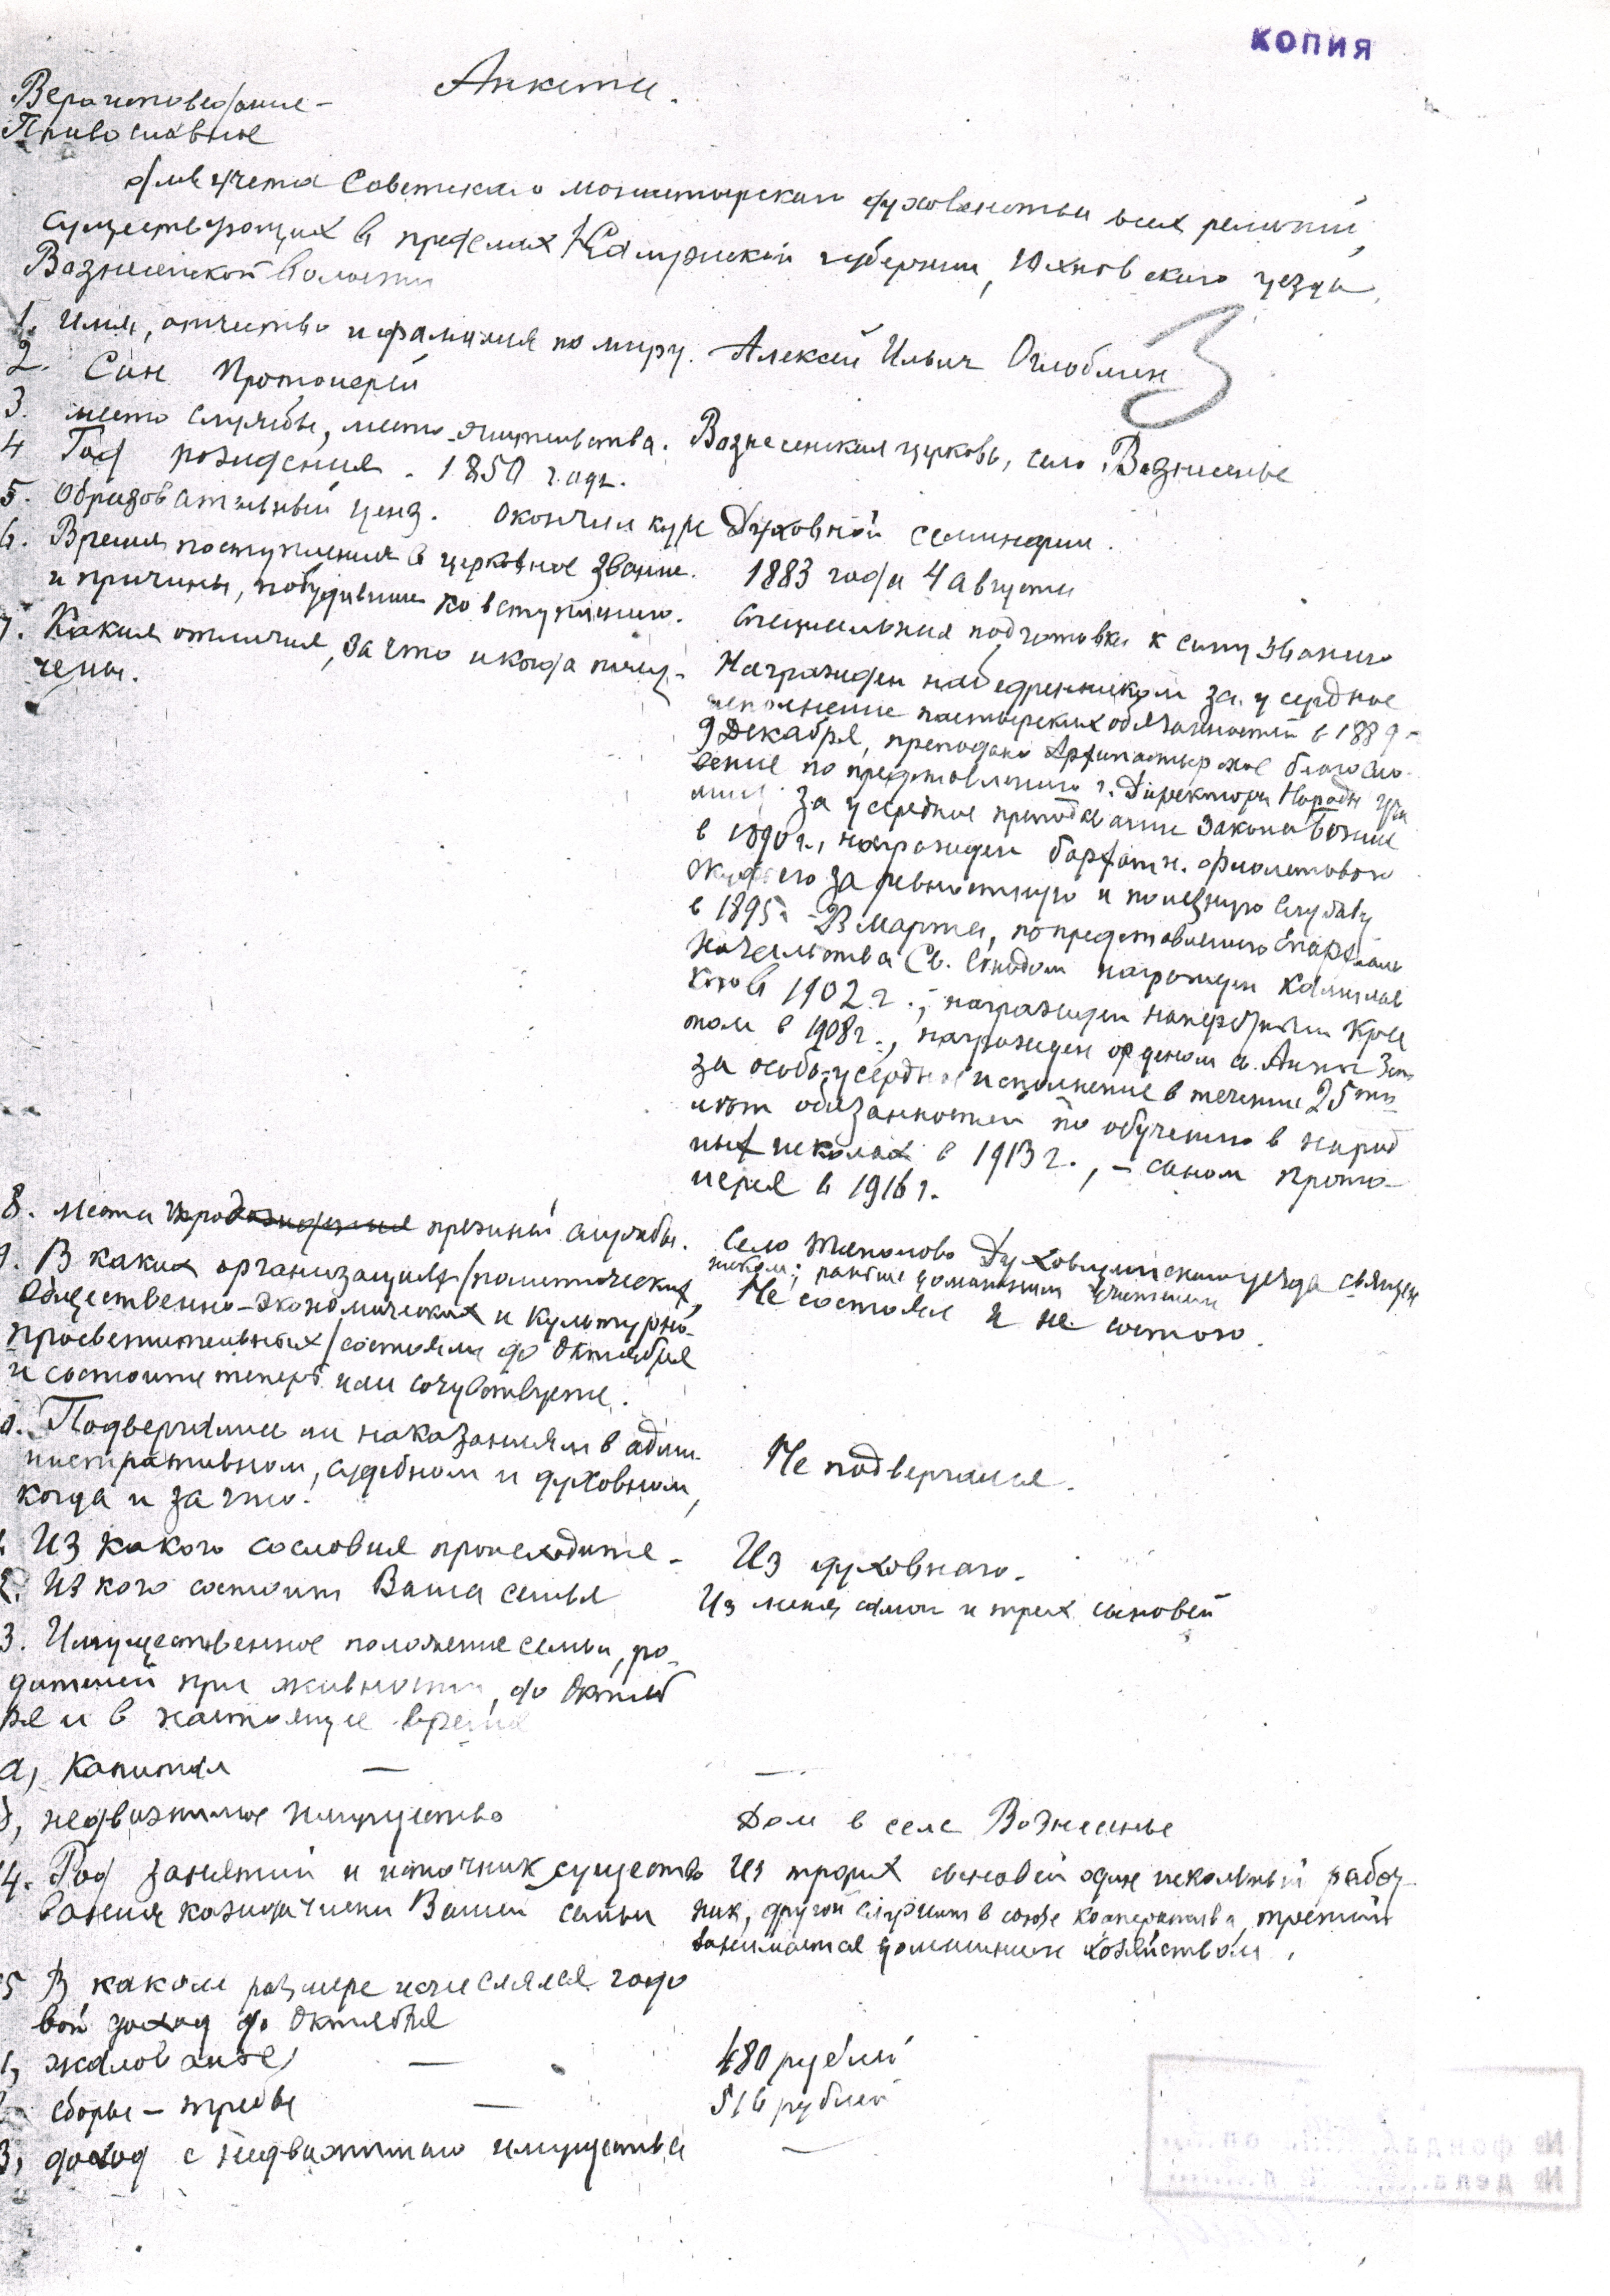 КОПИЯ
Анкета.
Вероисповедание –
Православное
для учета Советского монастырского духовенства всех религий,
существующих в пределах Калужской губернии, Юхновского уезда,
Вознесенской волости
1. Имя, отчество и фамилия по миру. Алексей Ильич Оглоблин
2. Сан Протоиерей
3. место службы, место жительства. Вознесенская церковь, село Вознесенье
4 Год рождения. 1850 года.
5. Образовательный ценз. Окончил курс Духовной семинарии.
6. Время поступления в церковное звание. 1883 года 4 августа
и причины, побудившие ко вступлению. Специальная подготовка к сему званию
7. Какия отличия, за что и когда полу-
чены.
Награжден набедренником за усердное
исполнение пастырских обязанностей в 1889
9 Декабря, преподано Архипастырское благосло-
вение по представлению г. Директора Народн учи
лищ за усердное преподавание Закона Божие
в 1890 г., награжден бархатн. фиолетовою
скуфьею за ревностную и полезную службу
в 1895 г. 23 марта, по представлению Епархиаль
начальства Св. Синодом награжден Камилав
кою в 1902 г., награжден наперсным Крес
том в 1908 г., награжден орденом св. Анны 3 ст
за особо усердное исполнение в течение 25 ти
лет обязанностей по обучению в народ
ных школах в 1913 г., – саном прото-
иерея в 1916 г.
8. Места прежней службы. Село Духовщинского уезда священ
ником; раньше домашним учителем
9. В каких организациях /политических,
Общественно-экономических и культурно-
просветительных/ состояли до Октября
и состоите теперь или сочувствуете.
Не состоял и не состою.
0. Подвергались ли наказаниям в адми-
нистративном, судебном и духовном,
когда и за что.
Не подвергался.
Из какого сословия происходите – Из духовнаго.
2. Из кого состоит Ваша семья Из меня самого и трех сыновей
3. Имущественное положение семьи, ро-
дителей при живности, до Октяб
ря и в настоящее время
а, Капитал — —
недвижимое имущество Дом в селе Вознесенье
4. Род занятий и источник существо Из троих сыновей один школьный работ-
вания каждого члена Вашей семьи ник, другой служит в союзе кооператива, третий
занимается домашним хозяйством.
5 В каком размере исчислялся годо
вой доход до Октября
1, жалованье — 480 рублей
сборы – требы — 516 рублей
3, доход с недвижимого имущества —
№ фонда
№ дела